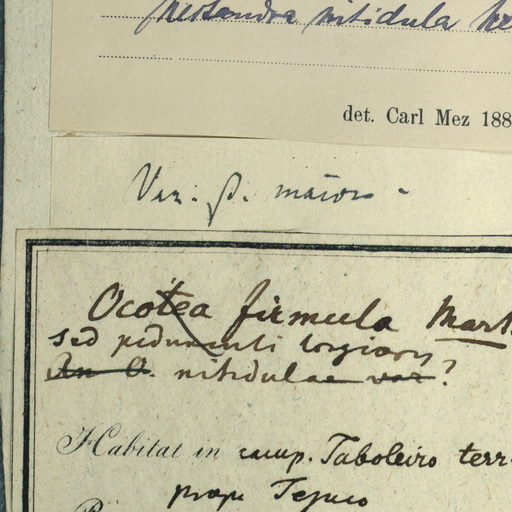 Nectandra nitidula
det. Carl Mez 188
Var. β. maior
Ocotea firmula Mart
sed pedunculi longiores
An O. nitidulae var?
Habitat in camp. Taboleiro terr
prope Tejuco